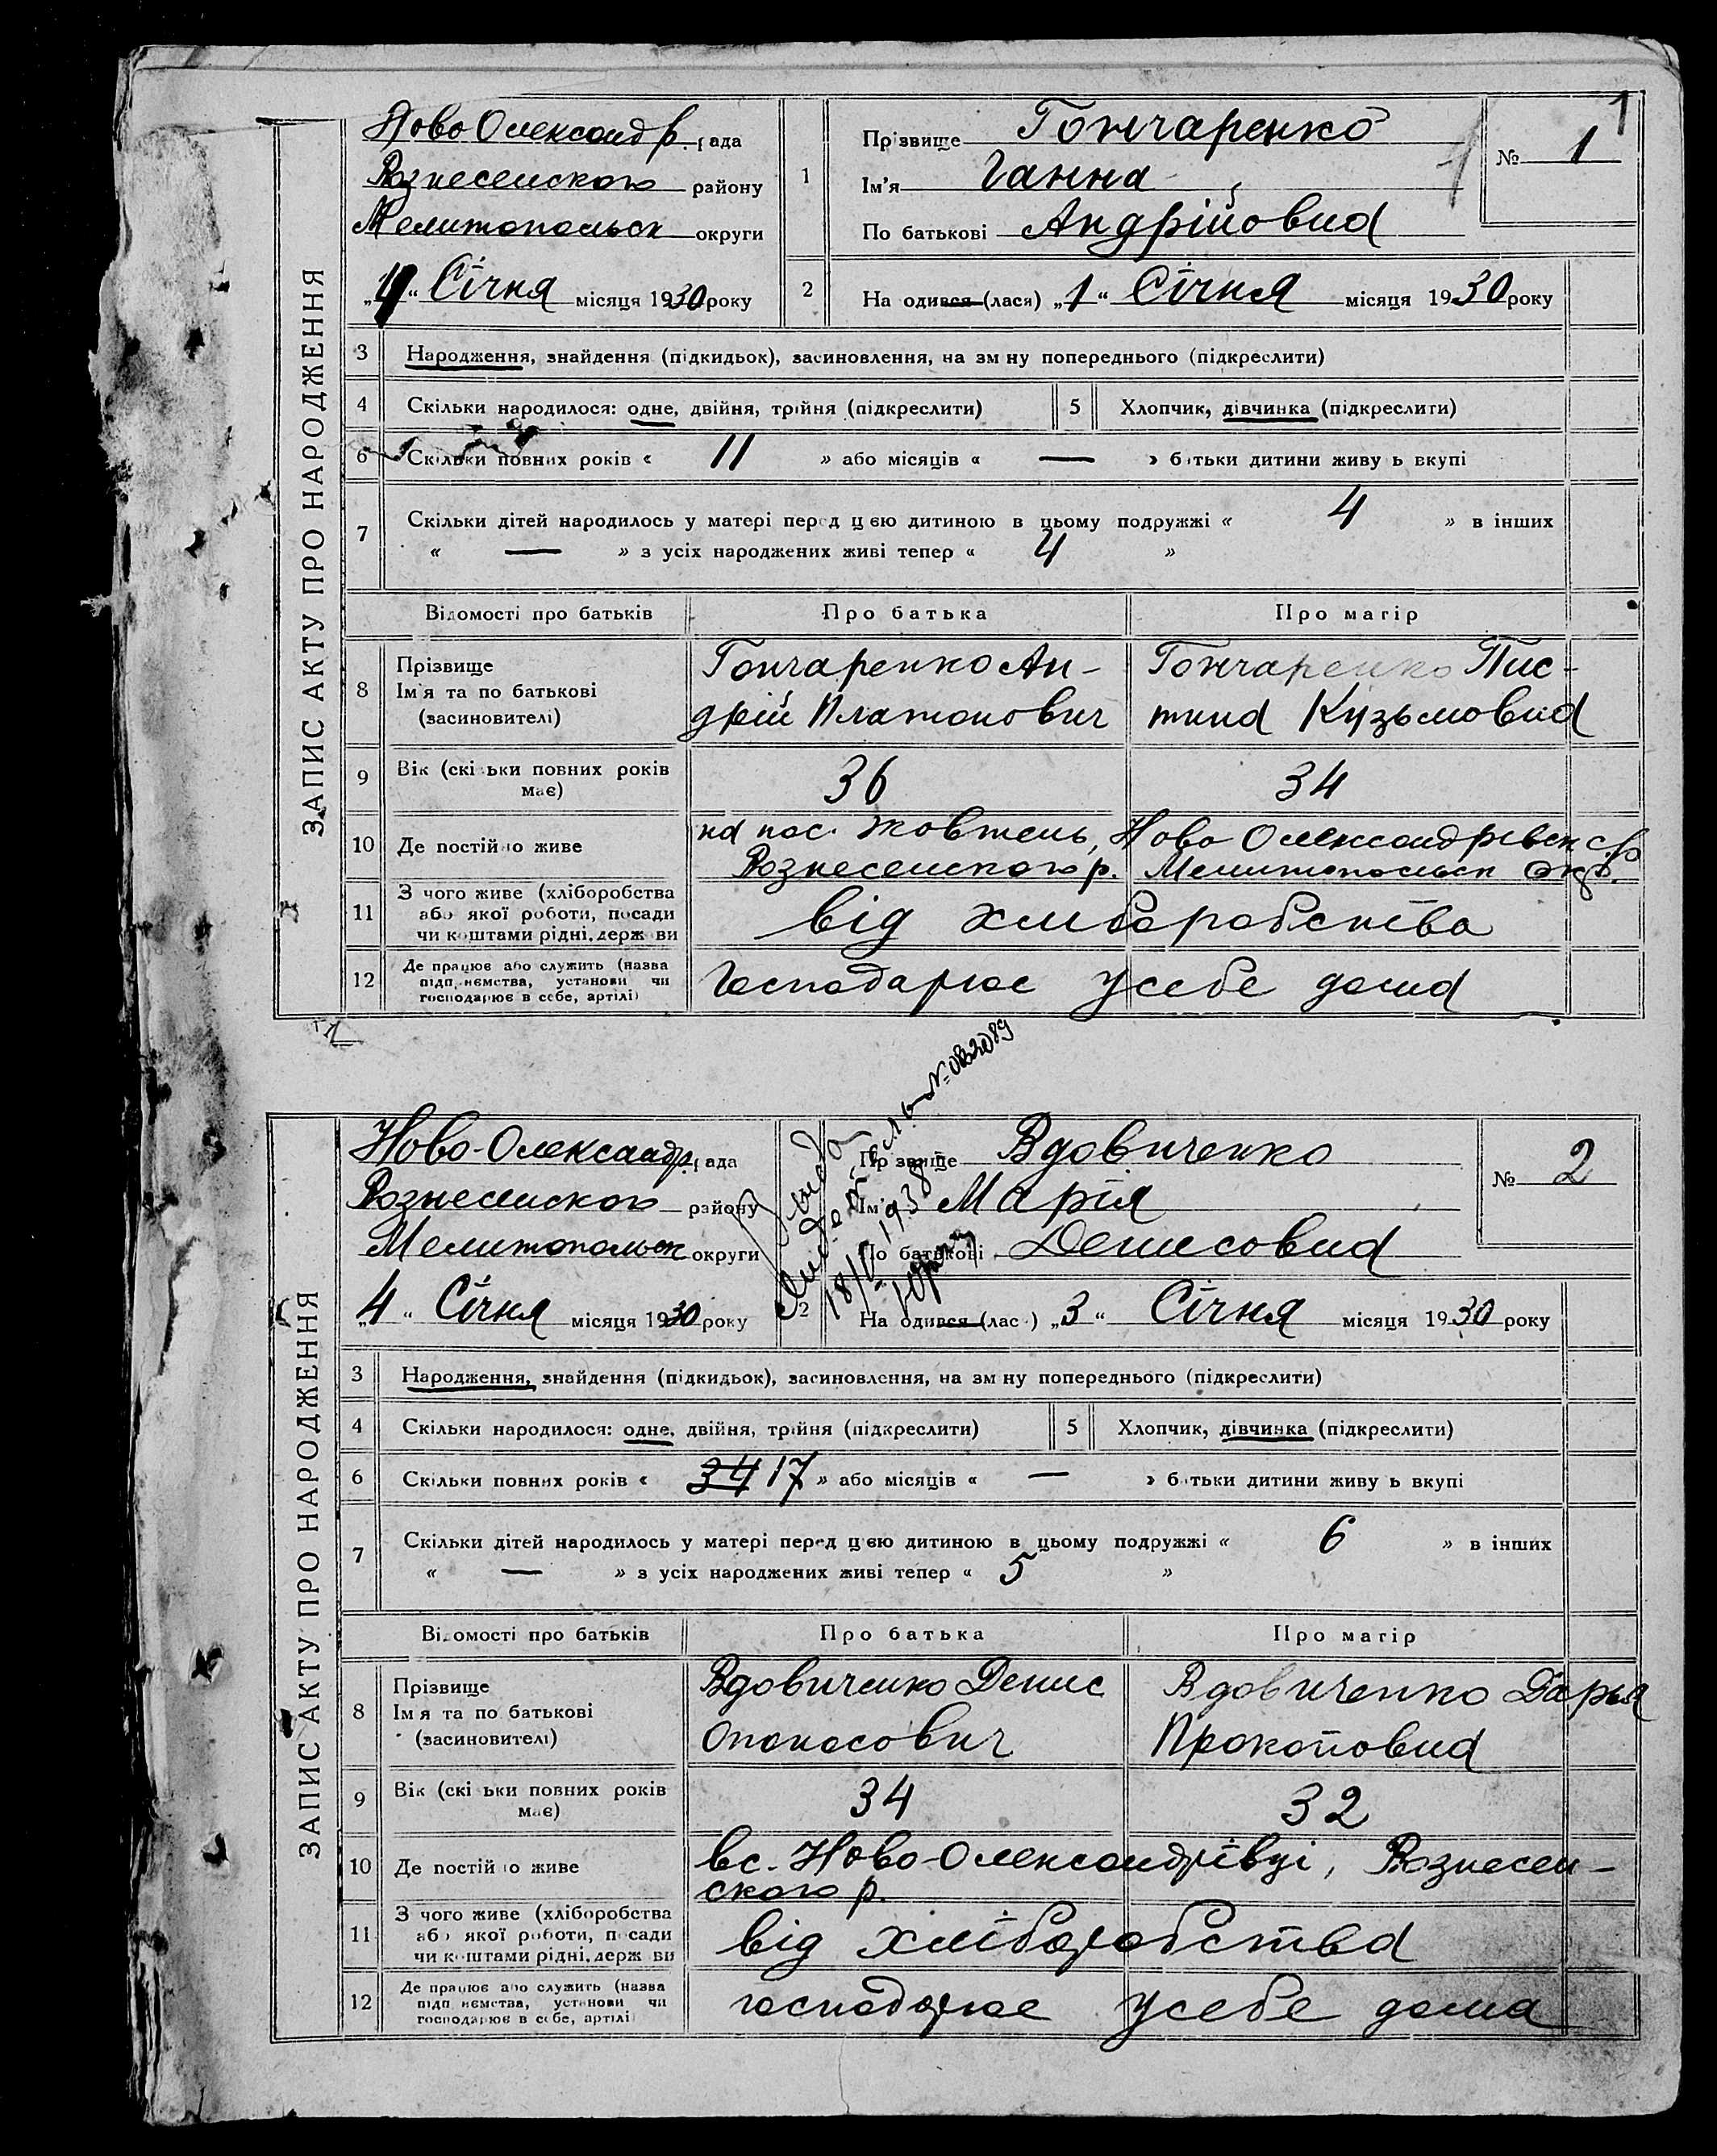 1
Ново Олександр. рада
Вознесенского району
Мелитопольск округи
„4“ Січня місяця 1930 року
1
Прізвище Гончаренко
Ім'я Ганна
По батькові Андрійовна
№ 1
2
На одився (лася) „1“ Січня місяця 1930 року
ЗАПИС АКТУ ПРО НАРОДЖЕННЯ
3 Народження, знайдення (підкидьок), засиновлення, на зм ну попереднього (підкреслити)
4 Скільки народилося: одне, двійня, трійня (підкреслити) 5 Хлопчик, дівчинка (підкреслити)
6 Скільки повних років « 11 » або місяців « — » батьки дитини живу ь вкупі
7 Скільки дітей народилось у матері перед цею дитиною в цьому подружжі « 4 » в інших
« — » з усіх народжених живі тепер « 4 »
Відомості про батьків Про батька Про матір
8 Прізвище
Ім'я та по батькові
(засиновителі)
Гончаренко Ан-
дрій Платонович
Гончаренко Пис-
тина Кузьмовна
9 Вік (скі ьки повних років
має)
36 34
10 Де постійно живе
на пос. Жовтень, Ново Олександрівск
Вознесенского р. Мелитопольск окр.
11 З чого живе (хліборобства
або якої роботи, посади
чи коштами рідні, держ ви
від хліборобства
12 Де працює або служить (назва
підп иємства, установи чи
господарює в себе, артілі)
Господарює усебе дома
№ 0832089
Ново-Олександр. рада
Вознесенского району
Мелитопольск округи
„4“ Січня місяця 1930 року
Прізвище Вдовиченко
Ім' Марія
По батькові Денисовна
№ 2
2
На одився (лас ) „3“ Січня місяця 1930 року
1938
ЗАПИС АКТУ ПРО НАРОДЖЕННЯ
3 Народження, знайдення (підкидьок), засиновлення, на зм ну попереднього (підкреслити)
4 Скільки народилося: одне, двійня, трійня (підкреслити) 5 Хлопчик, дівчинка (підкреслити)
6 Скільки повних років « 34 17 » або місяців « — » батьки дитини живу ь вкупі
7 Скільки дітей народилось у матері перед цею дитиною в цьому подружжі « 6 » в інших
« — » з усіх народжених живі тепер « 5 »
Відомості про батьків Про батька Про матір
8 Прізвище
Ім'я та по батькові
(засиновителі)
Вдовиченко Денис
Опанасович
Вдовиченко Дарья
Прокоповна
9 Вік (скі ьки повних років
має)
34 32
10 Де постійно живе
вс. Ново-Олександрівці, Вознесен-
ского р.
11 З чого живе (хліборобства
або якої роботи, посади
чи коштами рідні, держ ви
від хліборобства
12 Де працює або служить (назва
підп иємства, установи чи
господарює в себе, артілі)
господарює усебе дома